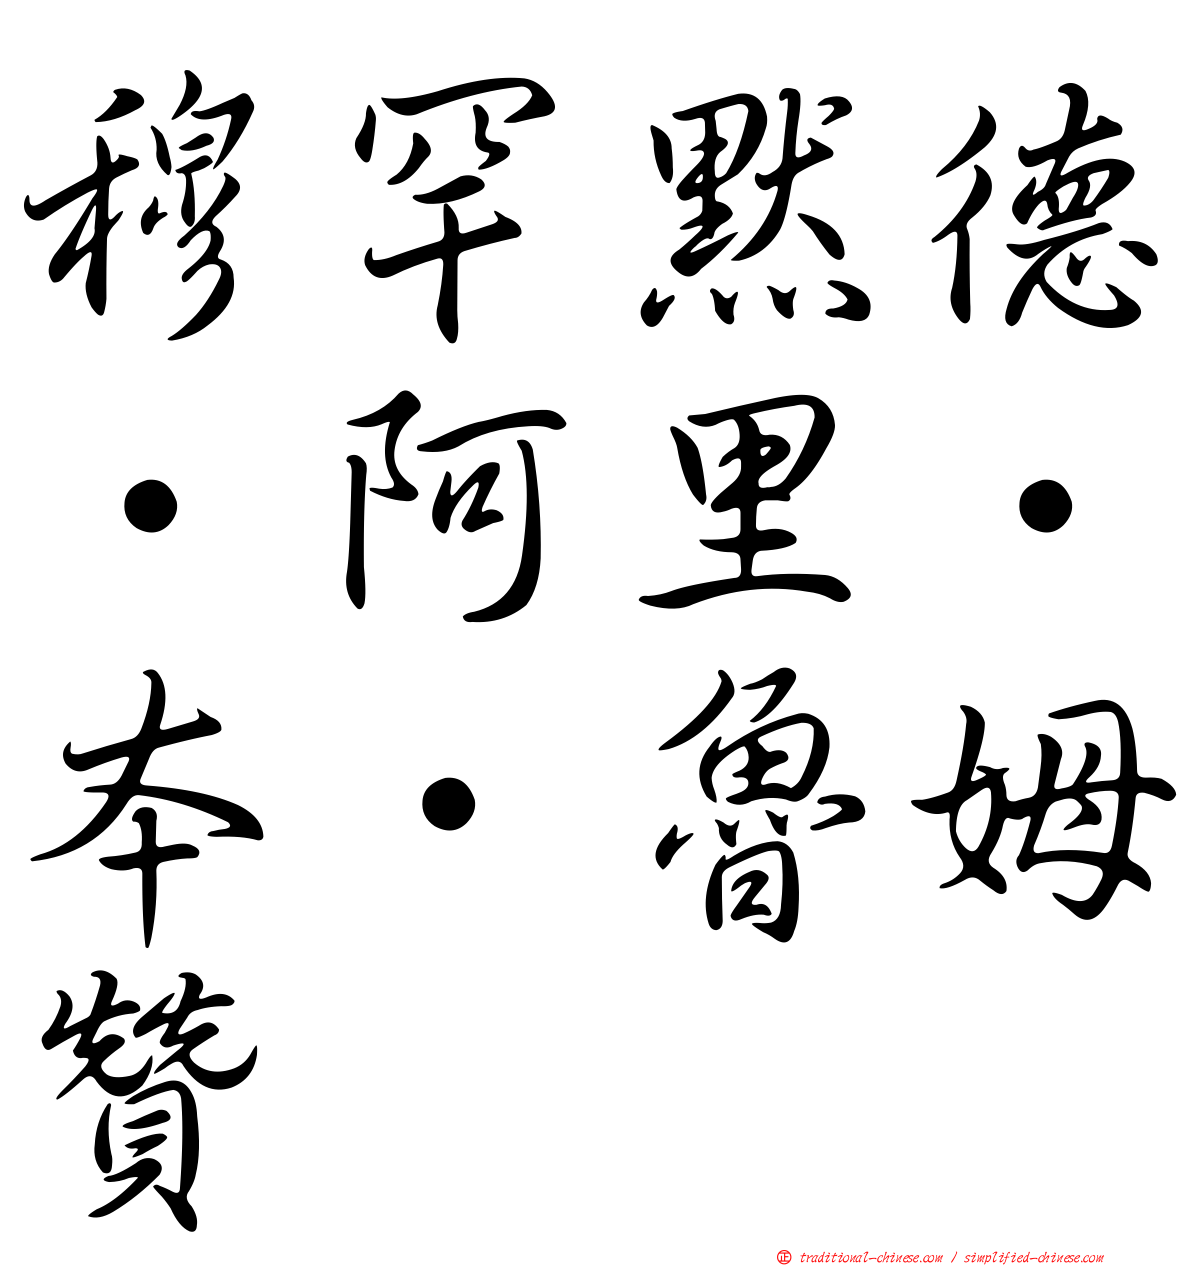 穆罕默德
·阿里·
本·魯姆
贊
正 traditional-chinese.com / simplified-chinese.com